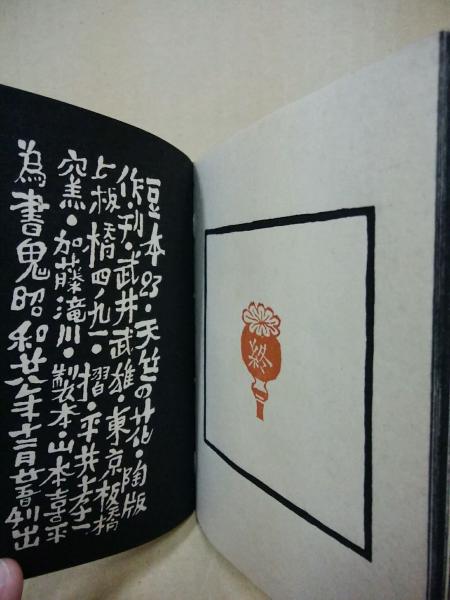 豆本23・天竺の花・陶版
作・刊・武井武雄・東京板橋
上板橋四九一・摺・平井孝一
窯・加藤滝川・製本・山本喜平
為書鬼昭和廿八年
終